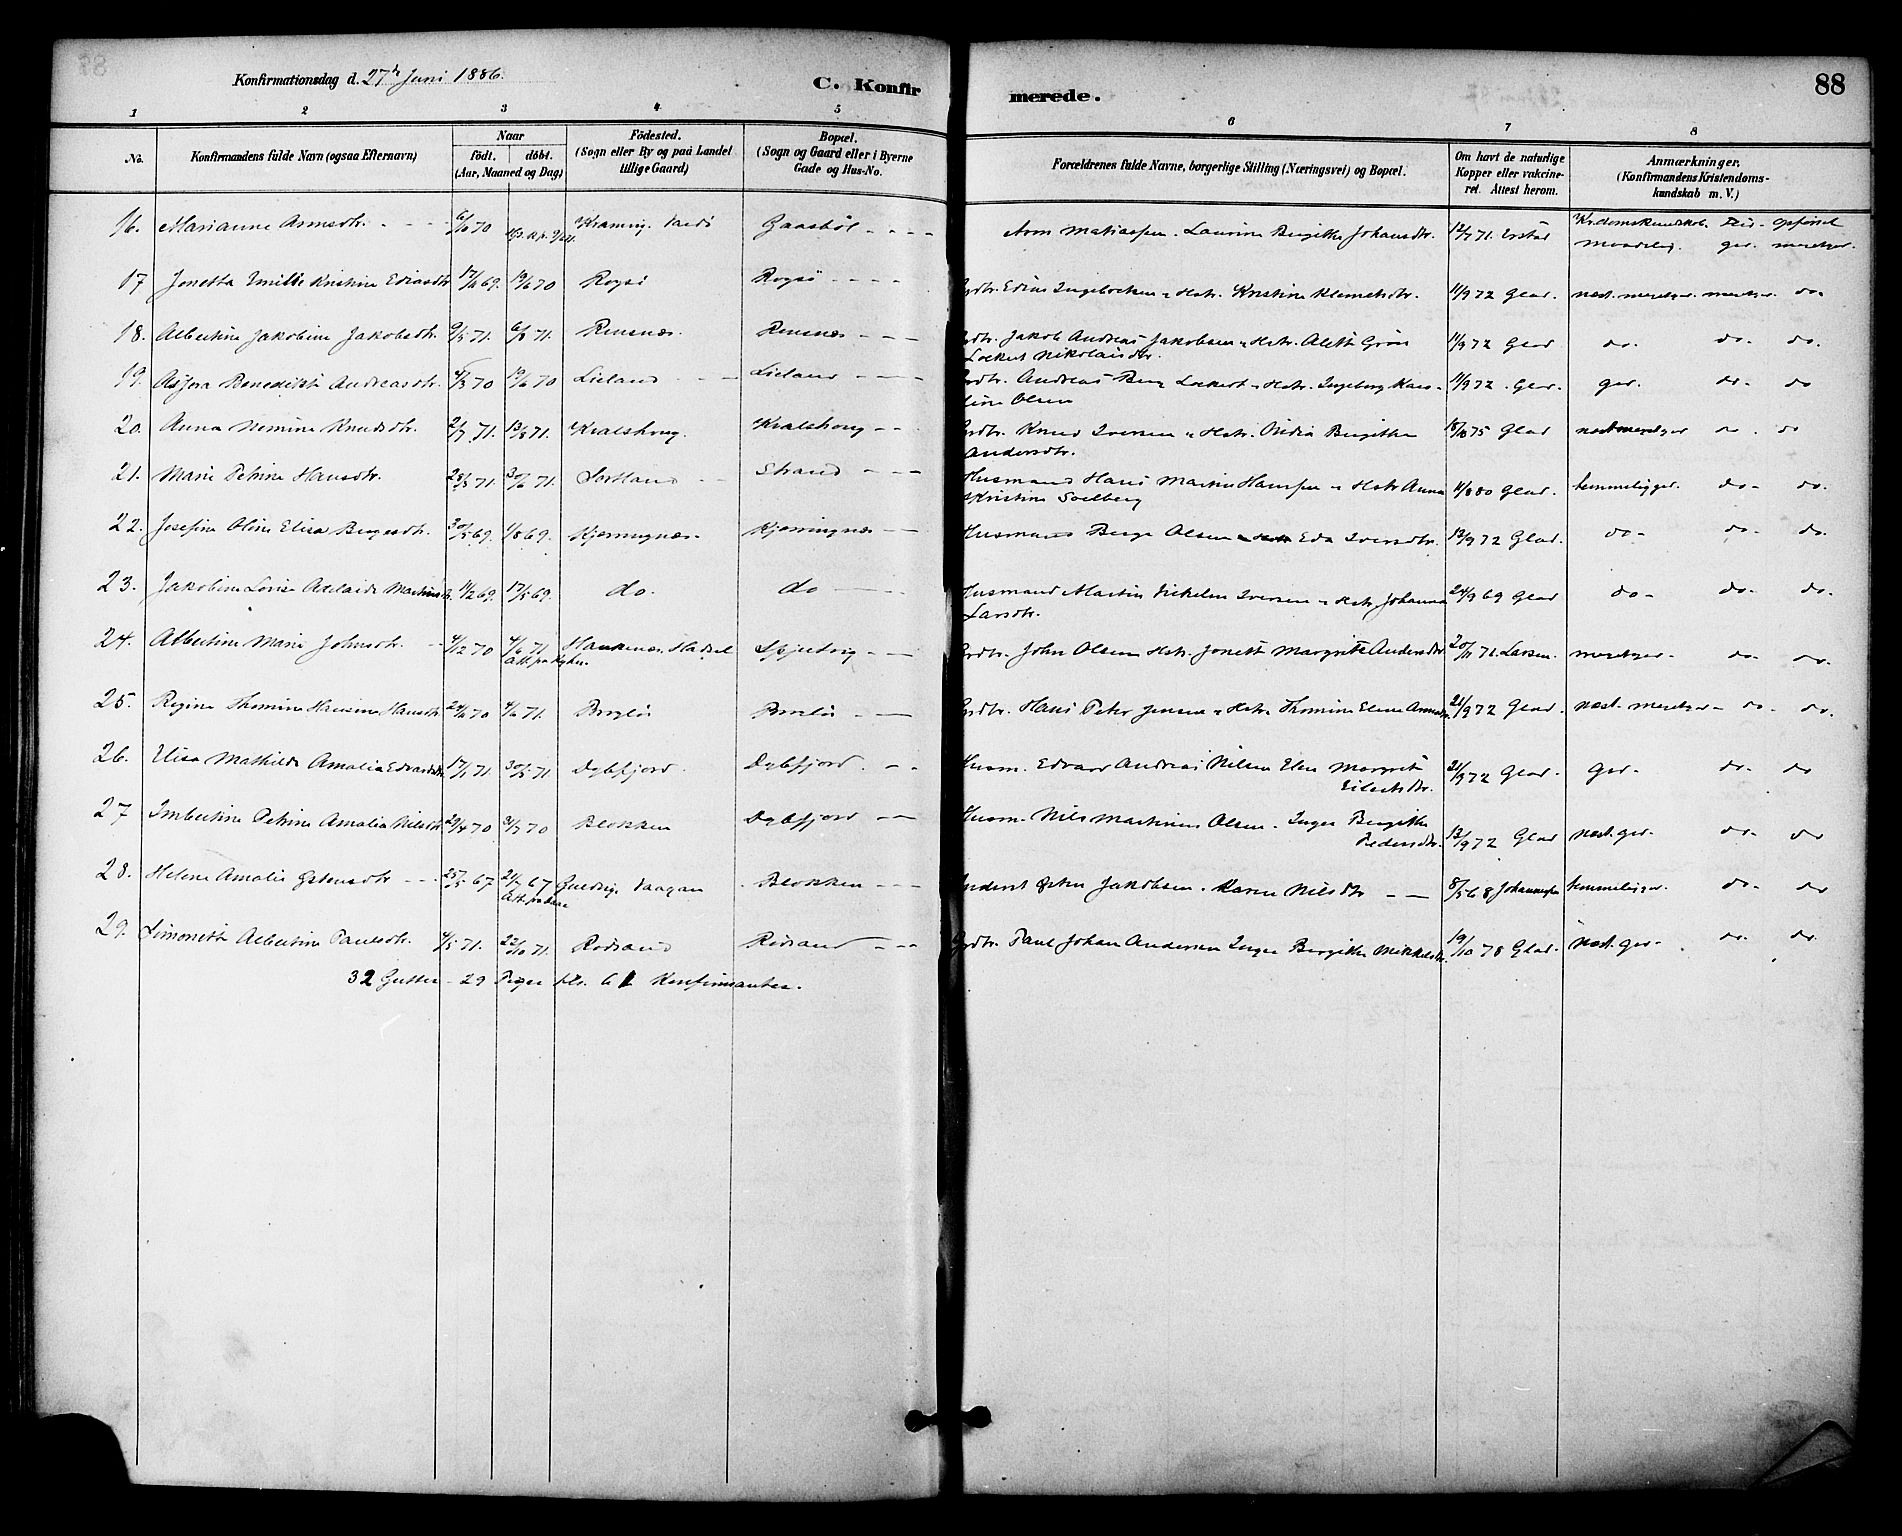 Konfirmationsdag d. 27de Juni 1886.
C. Konfirmerede.
88
1 2 3 4 5 6 7 8
No. Konfirmandens fulde Navn (ogsaa Efternavn) Naar födt. döbt. (Aar, Maaned og Dag) Födested. (Sogn eller By og paa Landet tillige Gaard) Bopæl. (Sogn og Gaard eller i Byerne Gade og Hus-No. Forældrenes fulde Navne, borgerlige Stilling (Næringsvei) og Bopæl. Om havt de naturlige Kopper eller vakcineret. Attest herom. Anmærkninger. (Konfirmandens Kristendomskundskab m. V.)
16. Marianne Arnsdtr. 70 Gaasböl Arn Matiassen. Laurine Birgitte Johansdtr. 12/7 71.
17 Jonetta Emilie Kristine Ediasdtr 17/11 69. 19/6 70 Rogsö Rogsö Grdbr. Edias Ingebrigtsen Hstr. Kristine Klemetsdtr. 11/9 72 Glad. næst. meretgr. meretgr. do.
18. Albertine Jakobine Jakobsdtr. 9/5 71. 6/8 71. Rensnæs. Rensnæs Grdbr. Jakob Andreas Jakobsen Hstr. Alette Grön
Lockert Nikolaisdtr. 11/9 72 Glad do. do. do.
19. Benedikte Andreasdtr. 4/3 70 19/6 70 Lieland Lieland Grdbr. Andreas Berg Lockert Hstr. Ingeborg Karoline Olsen 11/9 72. Glad. gdr. do. do
20. Anna Nemine Knudsdtr. 2/7 71. 13/8 71. Kvalshoug. Kvalshoug Grdbr. Knud Iversen Hstr. Birgitte
Andersdtr. 18/8 75 Glad næstmeretgr do. do
21. Marie Petrine Hansdtr. 28/3 71. 30/6 71. Sortland Strand Husmand Hans Martin Hansen Hstr Anna
Kristine Solberg 11/8 80 Glad. temmeliggr. do. do.
22. Josefine Oline Elisa Bergesdtr. 30/5 69. 1/8 69. Kjerringnæs. Kjerringnæs Husmand Berge Olsen Eda Iversdtr. 13/9 72 Glad. do. do. do.
23. Jakobine Lovise Adelaide Martinsdtr. 14/2 69. 17/5 69. do. do Husmand Martin Vikelm Iversen Hstr Johanna
Larsdtr. 24/9 69 Glad do. do. do.
24. Albertine Marie Johnsdtr. 4/12 70 4/6 71 Haukenæs Hadsel Spjutvig Grdbr. John Olsen Hstr. Jonette Margrete Andersdtr 20/11 71. Larsen. meretgr. do. do.
25. Regine Thomine Hansine Hansdtr. 24/11 70 4/6 71. Grdbr. Hans Peter Jensen Hstr. Thomine Elene Arnesdtr. 21/9 72 Glad. næst. meretgr do. do.
26. Elisa Mathilde Amalia Edvardsdtr. 17/1 71 30/5 71. Dybfjord. Dybfjord. Husm. Edvard Andreas Nilsen Elen Margrete
Eilertsdtr. 21/9 72 Glad. gdr. do. do
27 Imbertine Petrine Amalia Nilsdtr 24/4 70 31/7 70 Blokken Dybfjord Husm. Nils Martinus Olsen. Inger Birgitte
Pedersdtr. 13/9 72 Glad næst. gdr. do. do
28. Helene Amalie Estensdtr 25/5 67 21/7 67 Vaagan Blokken Inderst Esten Jakobsen. Karen Nilsdtr 8/5 68 Johannesen temmeliggr. do. do
29. Simonette Albertine Paulsdtr. 4/5 71. 22/10 71. Rödsand Rödsand Grdbr. Paul Johan Andersen Inger Birgitte Mikkelsdtr. 19/10 78 Glad. næst. gdr. do. do.
32 Gutter - 29 Piger tils. 61 Konfirmanter.